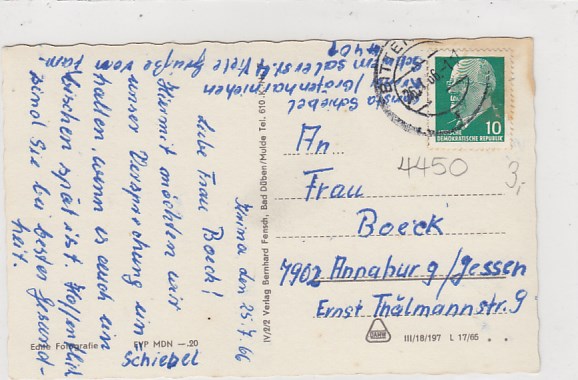 Grima den 25.7.66
Liebe Frau Boeck!
Hiermit möchten wir
unser Versprechung ein
halten, wenn es auch ein
bischen spät ist. Hoffentlich
sind Sie bei bester Gesund-
heit.
Viele Grüße von
Fam.
Schiebel
Schiebel
Gräfenhainichen
7401
IV/2/2 Verlag Bernhard Fensch, Bad Düben/Mulde Tel. 610
An
Frau
Boeck
7902 Annaburg/Jessen
Ernst Thälmannstr. 9
4450
3,
10
DEUTSCHE
DEMOKRATISCHE REPUBLIK
BITTE
Echte Fotografie
EVP MDN —.20
III/18/197 L 17/65